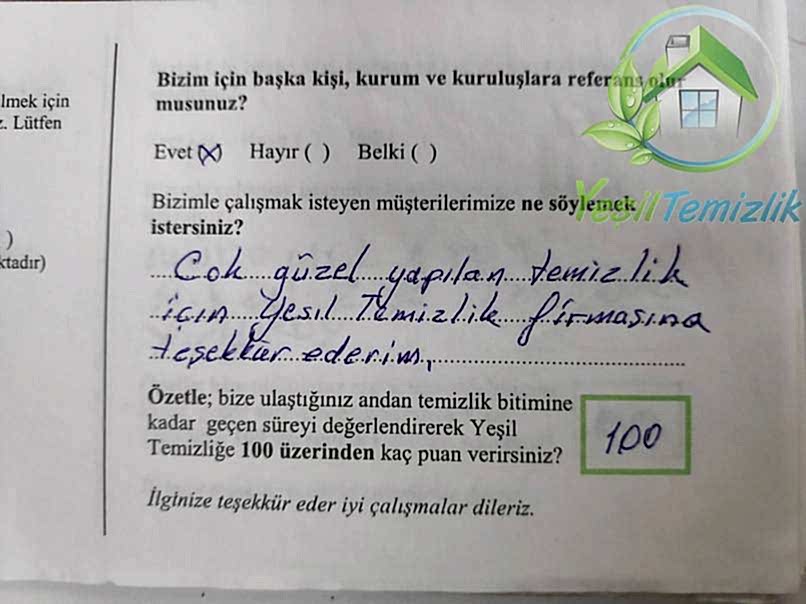 lmek için
z. Lütfen
)
ktadır)
Bizim için başka kişi, kurum ve kuruluşlara referans olur
musunuz?
Evet (X) Hayır ( ) Belki ( )
Bizimle çalışmak isteyen müşterilerimize ne söylemek
istersiniz?
Cok güzel yapılan temizlik
için Yesıl Temizlik firmasına
teşekkür ederim,
Özetle; bize ulaştığınız andan temizlik bitimine
kadar geçen süreyi değerlendirerek Yeşil
Temizliğe 100 üzerinden kaç puan verirsiniz?
100
İlginize teşekkür eder iyi çalışmalar dileriz.
Yeşil Temizlik